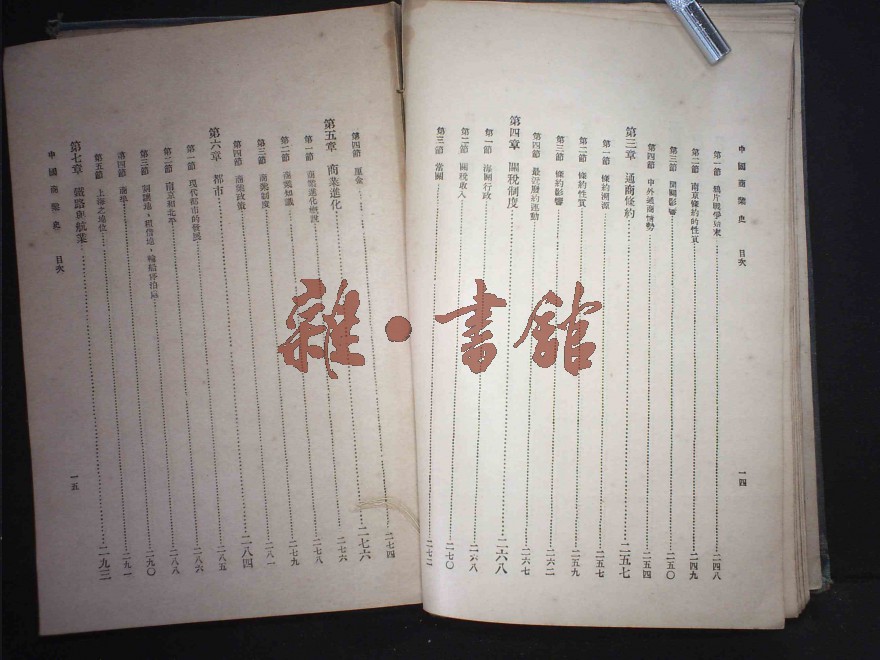 中國商業史 目次 一四
第一節 鴉片戰爭始末 二四八
第二節 南京條約的性質 二四九
第三節 開關影響 二五〇
第四節 中外通商情勢 二五四
第三章 通商條約 二五七
第一節 條約溯源 二五七
第二節 條約性質 二五九
第三節 條約影響 二六二
第四節 最近廢約運動 二六七
第四章 關稅制度 二六八
第一節 海關行政 二六八
第二節 關稅收入 二七〇
第三節 常關 二七二
第四節 厘金 二七四
第五章 商業進化 二七六
第一節 商業進化概說 二七六
第二節 商業知識 二七八
第三節 商業制度 二七九
第四節 商業政策 二八一
第六章 都市 二八四
第一節 現代都市的發展 二八五
第二節 南京和北平 二八六
第三節 割讓地、租借地、輪船停泊處 二八八
第四節 商埠 二九〇
第五節 上海之地位 二九一
第七章 鐵路與航業 二九三
中國商業史 目次 一五
雜·書館